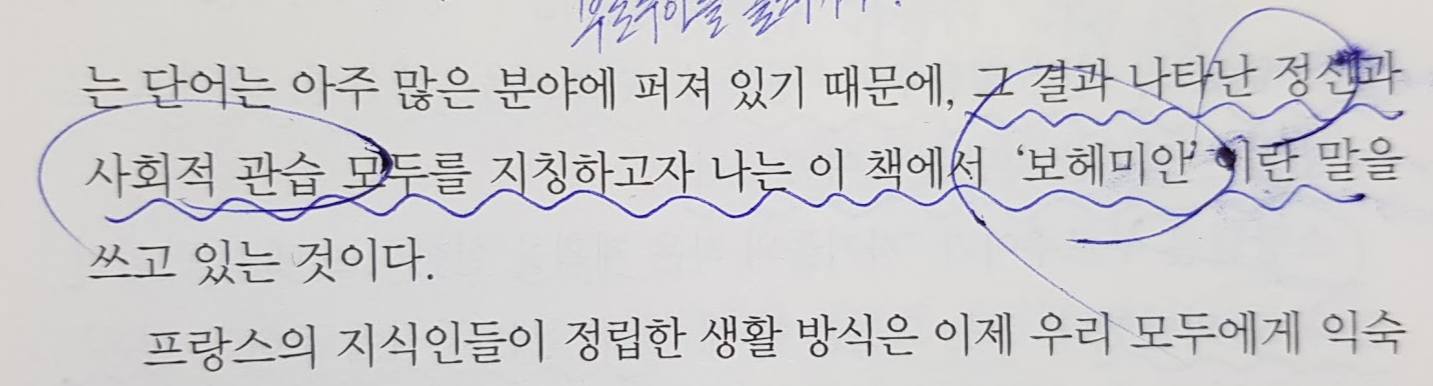 는 단어는 아주 많은 분야에 퍼져 있기 때문에, 그 결과 나타난 정신과
사회적 관습 모두를 지칭하고자 나는 이 책에서 ‘보헤미안’이란 말을
쓰고 있는 것이다.
프랑스의 지식인들이 정립한 생활 방식은 이제 우리 모두에게 익숙